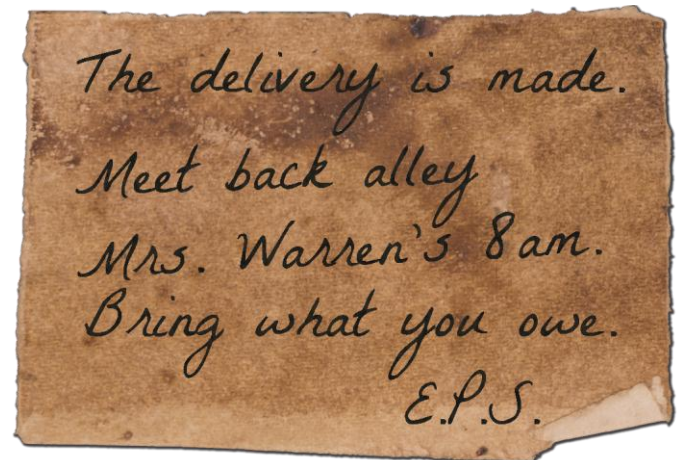 The delivery is made.
Meet back alley
Mrs. Warren's 8am.
Bring what you owe.
E.P.S.